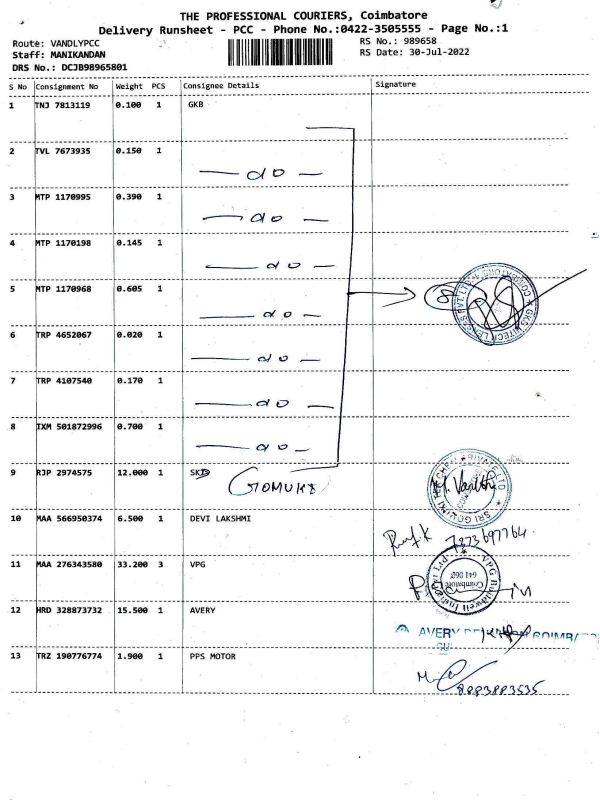 THE PROFESSIONAL COURIERS, Coimbatore
Delivery Runsheet - PCC - Phone No.:0422-3505555 - Page No.:1
Route: VANDLYPCC RS No.: 989658
Staff: MANIKANDAN RS Date: 30-Jul-2022
DRS No.: DCJB98965801
S No Consignment No Weight PCS Consignee Details Signature
1 TNJ 7813119 0.100 1 GKB
2 TVL 7673935 0.150 1
— do —
3 MTP 1170995 0.390 1
— do —
4 MTP 1170198 0.145 1
— do —
5 MTP 1170968 0.605 1
8
— do —
6 TRP 4652067 0.020 1
— do —
7 TRP 4107540 0.170 1
— do —
8 IXM 501872996 0.700 1
— do —
9 RJP 2974575 12.000 1 SKD
GOMUKI
SRI GOMUKI PRIVATE LTD
10 MAA 566950374 6.500 1 DEVI LAKSHMI
7373697764
11 MAA 276343580 33.200 3 VPG
VPG
Coimbatore
12 HRD 328873732 15.500 1 AVERY
AVERY
13 TRZ 190776774 1.900 1 PPS MOTOR
8883883535